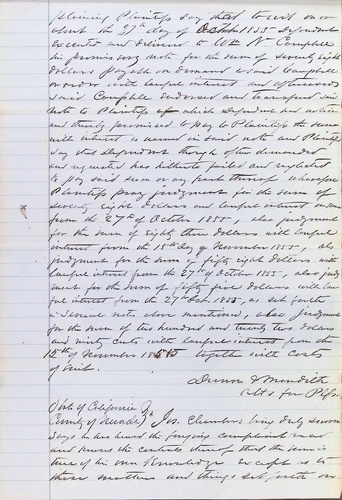 plaining Plaintiffs say that to wit on or
about the 27th day of October 1855 Defendant
executed and delivered to Wm N. Campbell
his promissory note for the sum of seventy eight
dollars payable on demand to said Campbell
or order with lawful interest and afterwards
said Campbell endorsed and transferred said
note to Plaintiffs of which Defendant has notice
and thereby promised to pay to Plaintiffs the same
with interest as named in said note and Plaintiffs
say that Defendant though often demanded
and requested has hitherto failed and neglected
to pay said sum or any part thereof wherefore
Plaintiffs pray judgment for the sum of
seventy eight dollars and lawful interest
from the 27th of October 1855, also judgment
for the sum of eighty three dollars with lawful
interest from the 15th day of November 1855, also
judgment for the sum of fifty eight dollars with
lawful interest from the 27th of October 1855, also judg
ment for the sum of fifty five dollars with law
ful interest from the 27th Oct. 1855, as set forth
in several notes above mentioned, also judgment
for the sum of two hundred and twenty two dollars
and ninety cents with lawful interest from the
12th of November 1855 together with costs
of suit.
Dunn & Meredith
Atts for Plffs.
State of California
County of Nevada Jos. Chambers being duly sworn
says he has heard the forgoing complaint read
and knows the contents thereof that the same is
true of his own knowledge except as to
those matters and things set forth on